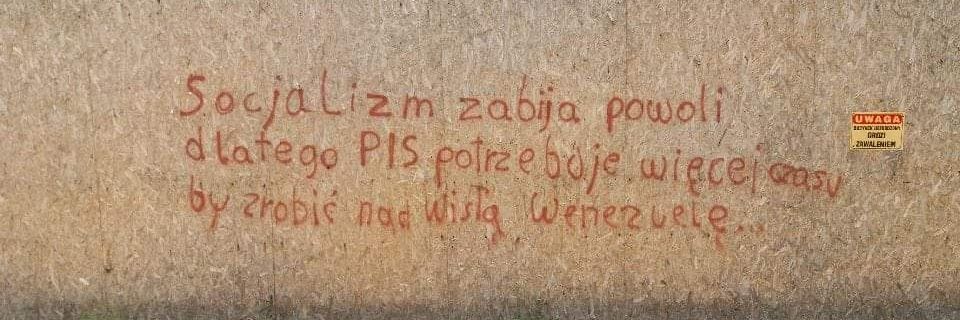 Socjalizm zabija powoli
dlatego PIS potrzebóje więcej czasu
by zrobić nad Wisłą Wenezuelę...
UWAGA
GROZI
ZAWALENIEM